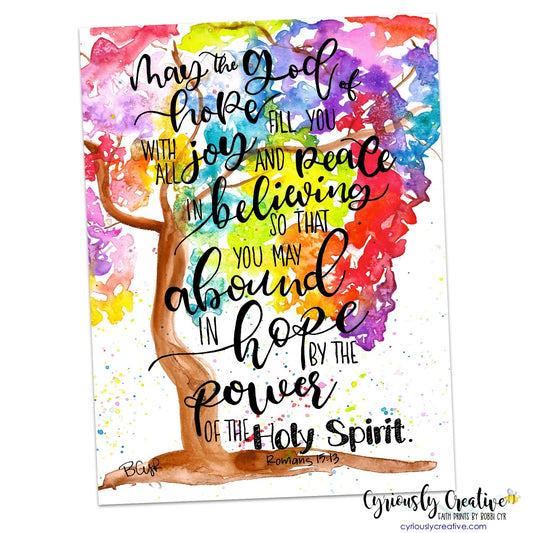 may the god of
hope FILL YOU
WITH ALL joy AND peace
IN believing
SO THAT
YOU MAY
abound
IN hope
BY THE
power
OF THE Holy Spirit.
Romans 15:13
BCyr
Cyriously Creative
FAITH PRINTS BY BOBBI CYR
cyriouslycreative.com